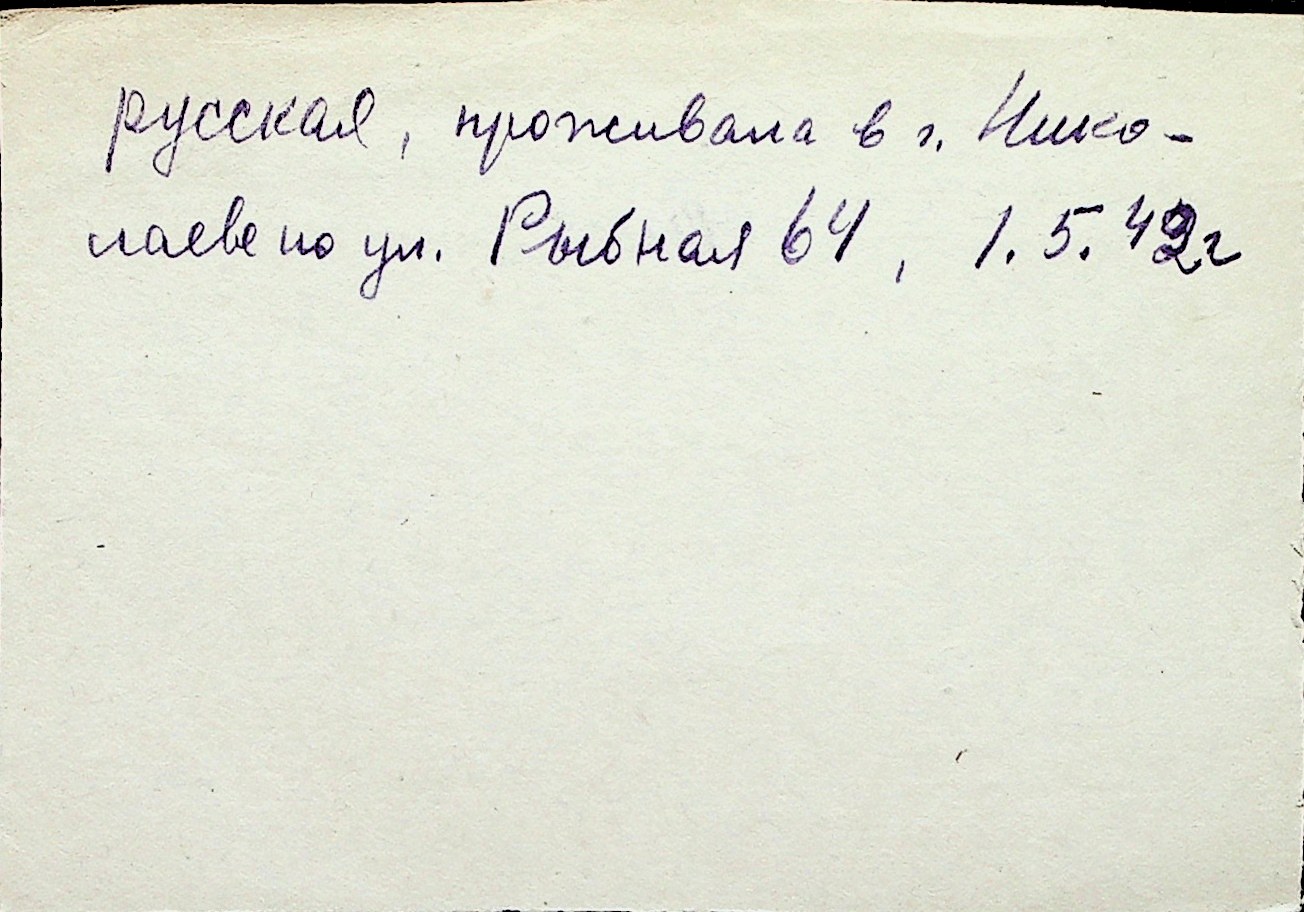 русская, проживала в г. Нико-
лаеве по ул. Рыбная 64, 1.5.42г